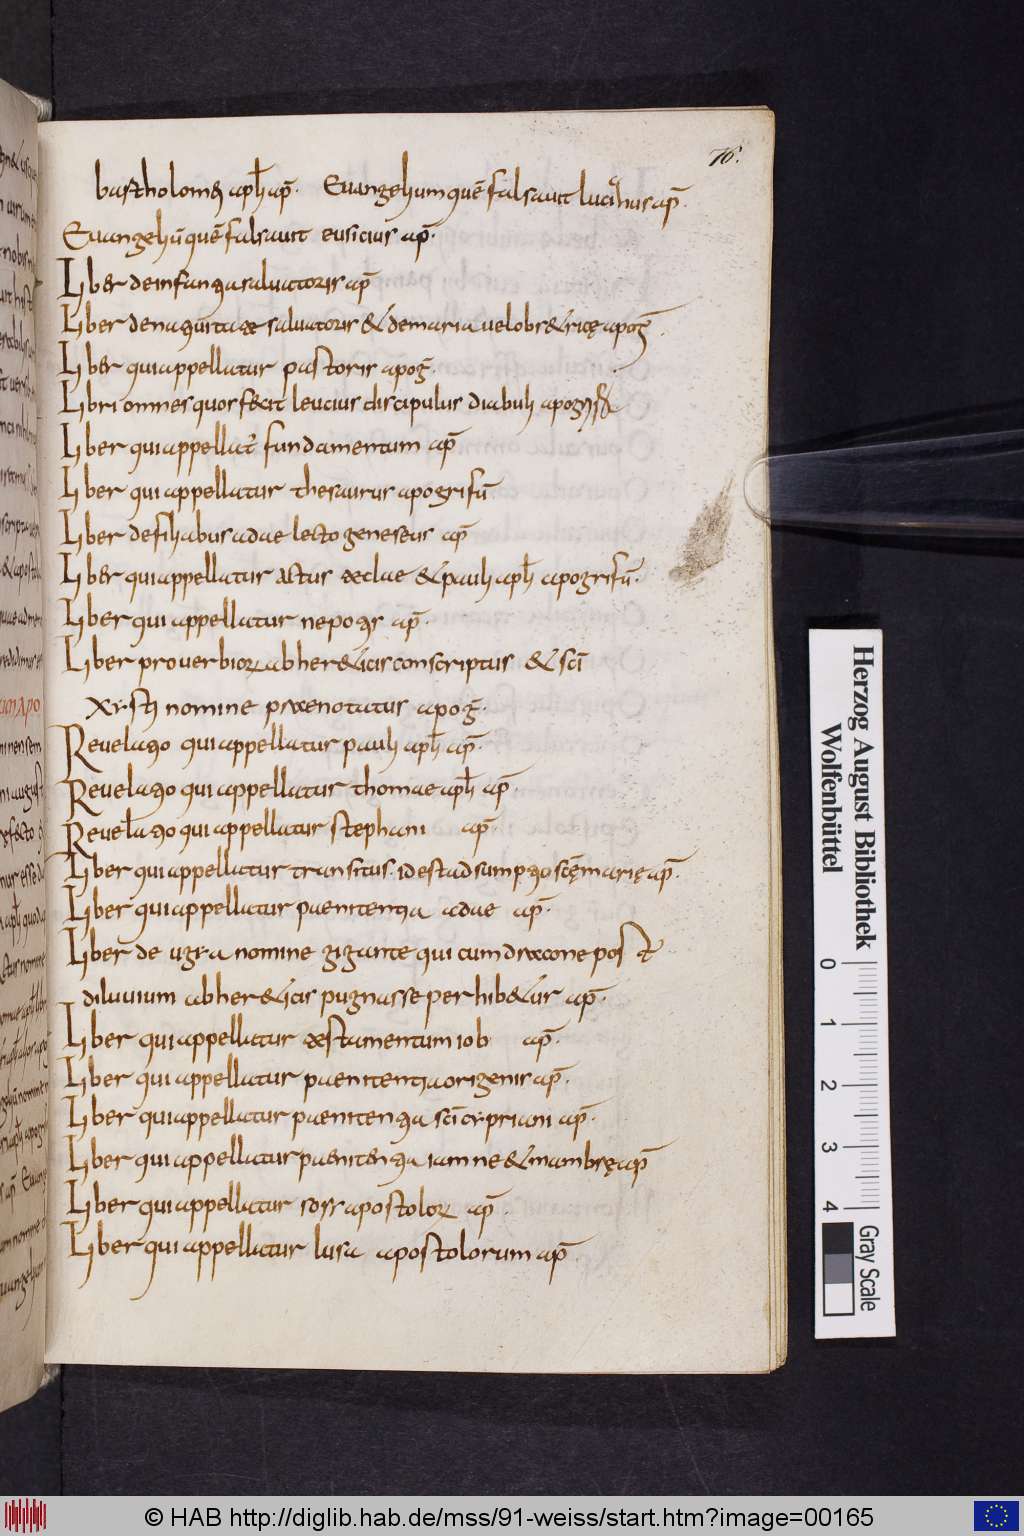 76.
bartholomei apłi ap̄. Euangelium quē falsauit lucianus ap̄.
Euangeliū quē falsauit eusicius ap̄.
Liber de infantia saluatoris ap̄
Liber de natiuitate saluatoris & de maria uel obs&rice apoḡ.
Liber qui appellatur pastoris apoḡ.
Libri omnes quos fecit leucius discipulus diabuli
Liber qui appellat̄ fundamentum ap̄
Liber qui appellatur thesaurus apogrifū
Liber de filiabus adae lecto geneseus ap̄
Liber qui appellatur actus teclae & pauli apłi apogrifū.
Liber qui appellatur nepotis ap̄.
Liber prouerbiorꝝ ab her&icis conscriptus & sc̄i
xysti nomine praenotatur apoḡ.
Reuelatio qui appellatur pauli apłi ap̄.
Reuelatio qui appellatur thomae apłi ap̄.
Reuelatio qui appellatur stephani ap̄.
Liber qui appellatur transitus. id est adsumptio scē marię ap̄.
Liber qui appellatur paenitentia adae ap̄.
Liber de ugia nomine gigante qui cum dracone post
diluuium ab her&icis pugnasse perhib&ur ap̄.
Liber qui appellatur testamentum iob ap̄.
Liber qui appellatur paenitentia origenis ap̄.
Liber qui appellatur paenitentia sc̄i cypriani ap̄.
Liber qui appellatur paenitentia iamne & mambrę ap̄
Liber qui appellatur sors apostolorꝝ ap̄.
Liber qui appellatur lusa apostolorum ap̄.
Herzog August Bibliothek
Wolfenbüttel
0 1 2 3 4
Gray Scale
© HAB http://diglib.hab.de/mss/91-weiss/start.htm?image=00165